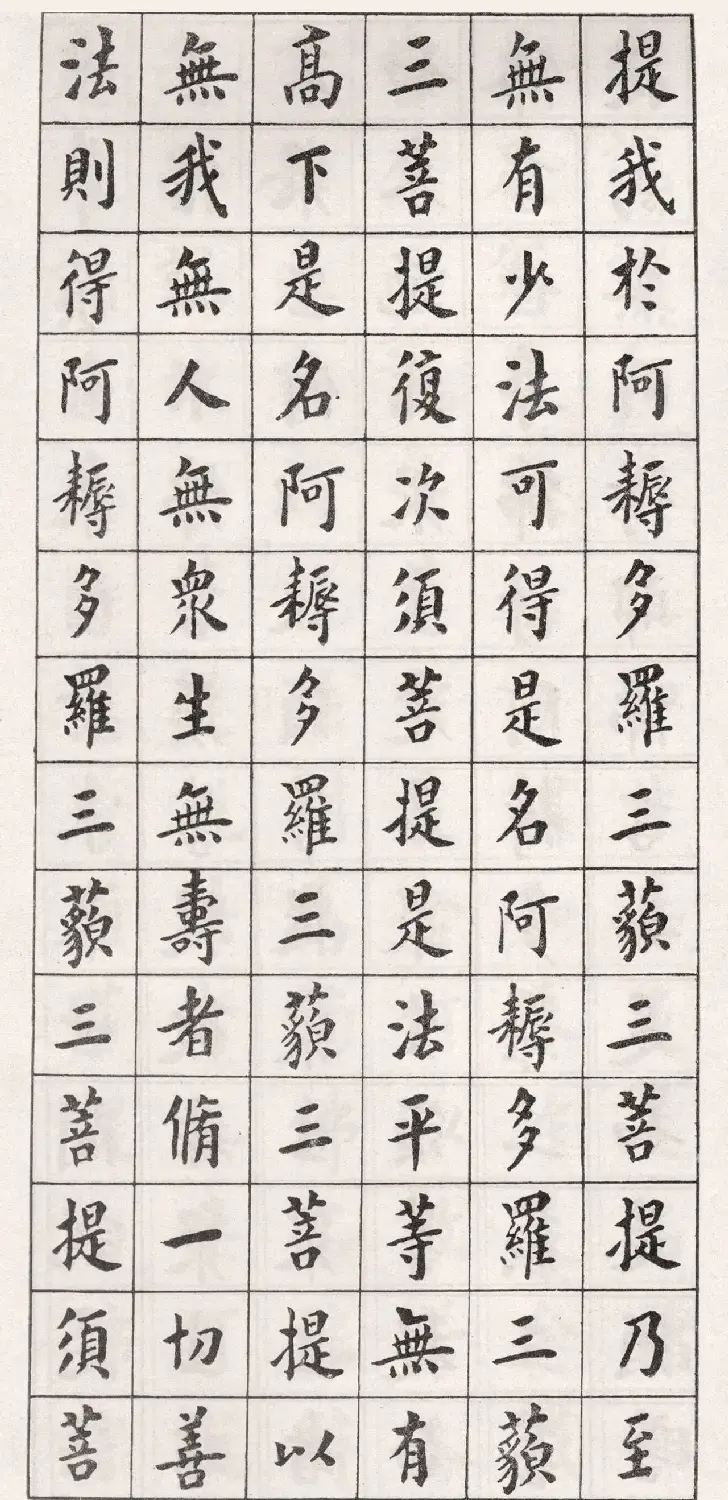 提我於阿耨多羅三藐三菩提乃至
無有少法可得是名阿耨多羅三藐
三菩提復次須菩提是法平等無有
高下是名阿耨多羅三藐三菩提以
無我無人無衆生無壽者脩一切善
法則得阿耨多羅三藐三菩提須菩